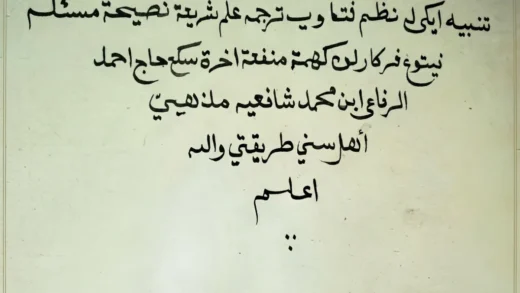 تنبيه ايكي نظم فتاوي ترجمه علم شريعة نصيحة
فركارن منفعة اخرة سكع حاج احمد
الرفاعي ابن محمد شافعيه مذهبيّ
أهل سني طريقتي والله
اعلم